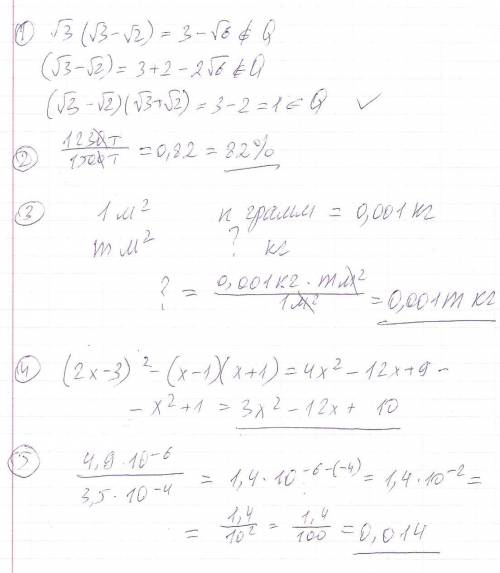 ① √3 (√3-√2) = 3-√6 ∉ Q
(√3-√2) = 3+2-2√6 ∉ Q
(√3-√2)(√3+√2) = 3-2 = 1 ∈ Q ✓
② 1230т/1500т = 0,82 = 82%
③ 1 м² n грамм = 0,001 кг
m м² ? кг
? = 0,001 кг · m м² / 1 м² = 0,001 m кг
④ (2x-3)² - (x-1)(x+1) = 4x² - 12x + 9 -
- x² + 1 = 3x² - 12x + 10
⑤ 4,9·10⁻⁶ / 3,5·10⁻⁴ = 1,4·10⁻⁶⁻⁽⁻⁴⁾ = 1,4·10⁻² =
= 1,4/10² = 1,4/100 = 0,014